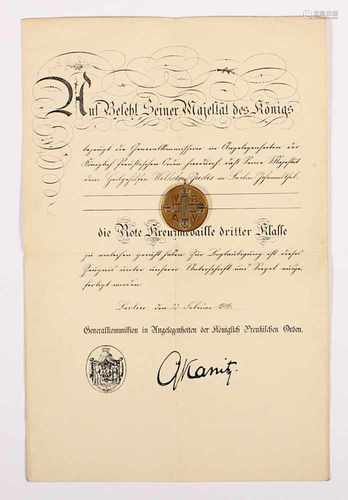 Auf Befehl Seiner Majestät des Königs
bezeugt die Generalkommission in Angelegenheiten der
Königlich Preußischen Orden hierdurch daß Seine Majestät
dem in Berlin
die Rote Kreuzmedaille dritter Klasse
zu verleihen geruht haben. Zur Beglaubigung ist dieses
Zeugnis unter unserer Unterschrift und Siegel ausge-
fertigt worden.
Berlin, den Februar
Generalkommission in Angelegenheiten der Königlich Preußischen Orden.
Kanitz